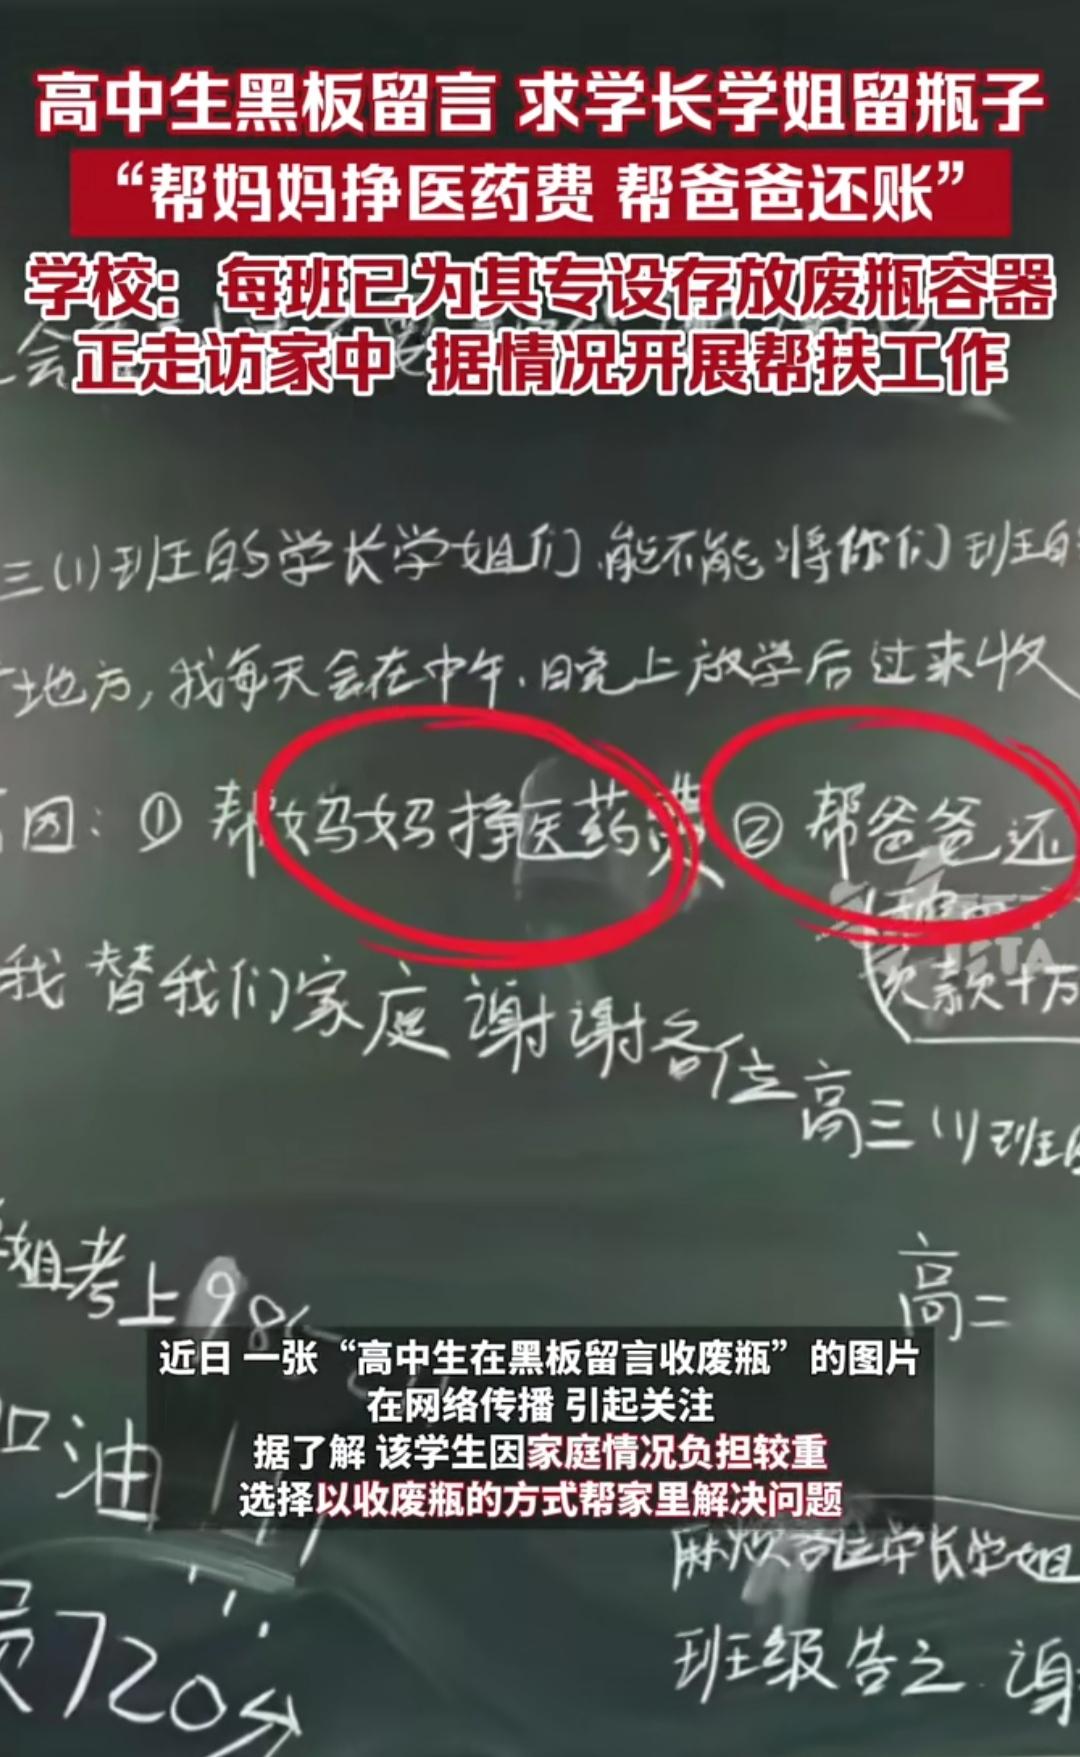 高中生黑板留言 求学长学姐留瓶子
“帮妈妈挣医药费 帮爸爸还账”
学校：每班已为其专设存放废瓶容器
正走访家中 据情况开展帮扶工作
三(1)班的学长学姐们,能不能将你们班的
地方,我每天会在中午、晚上放学后过来收
因：① 帮妈妈挣医药费 ② 帮爸爸还
欠款十万
我替我们家庭谢谢各位高三(1)班
姐考上98
高二
近日 一张“高中生在黑板留言收废瓶”的图片
在网络传播 引起关注
据了解 该学生因家庭情况负担较重
选择以收废瓶的方式帮家里解决问题
加油
麻烦各位学长学姐
720分
班级告之.谢